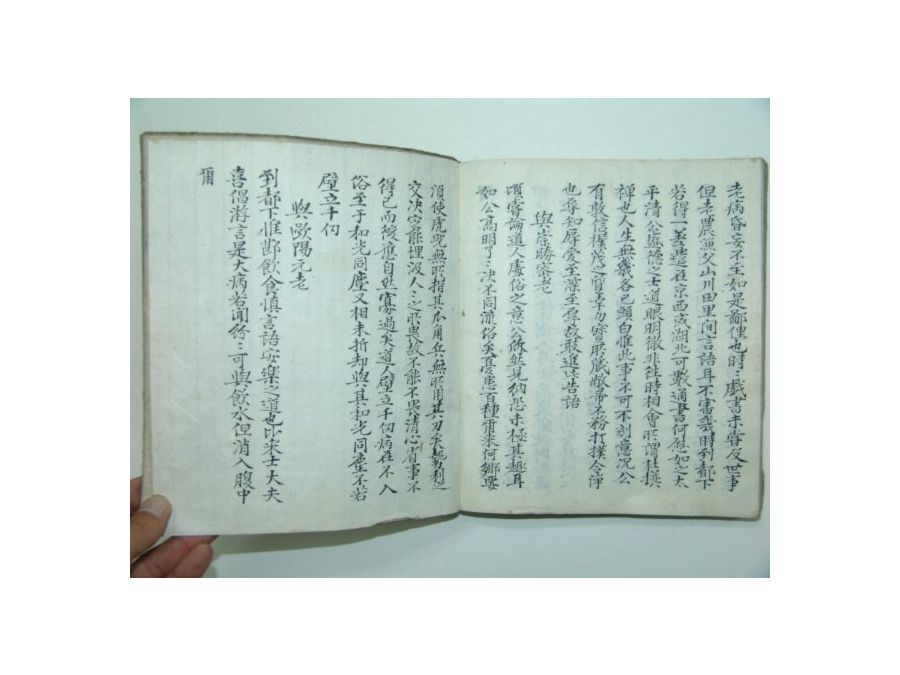 老病昏妄不至如是鄙俚也時〻戲書未嘗及世事
但老農漁父山川田里間言語耳不審幾時到都下
若得一善遣在京西或湖北可數通書何慰如之太
平清公盛德之士道眼明徹非性時相會所謂杜撰
禪也人生無幾各已頭白惟此事不可不刻意況公
有敦信樸茂之質幸勿穿取戲敝帚不務打撲令淨
也辱知辱愛至深至厚故敢進此告語
與崇勝密老
頃嘗論道人處俗之意公脩然見納恐未極其趣耳
如公高明了〻決不同流俗矣憂患百種彌來何鄉要
須使虎兕無所措其爪角兵無所用其刃矣勢利之
交決定能埋沒人〻之所畏故不能不畏清心省事不
得已而後應自然寡過矣道人壁立千仞病在不入
俗至于和光同塵又相未折却與其和光同塵不若
壁立千仞
與歐陽元老
到都下惟節飲食慎言語安樂之道也比來士大夫
喜倡游言是大病若聞紛〻可與飲水但消入腹中
爾